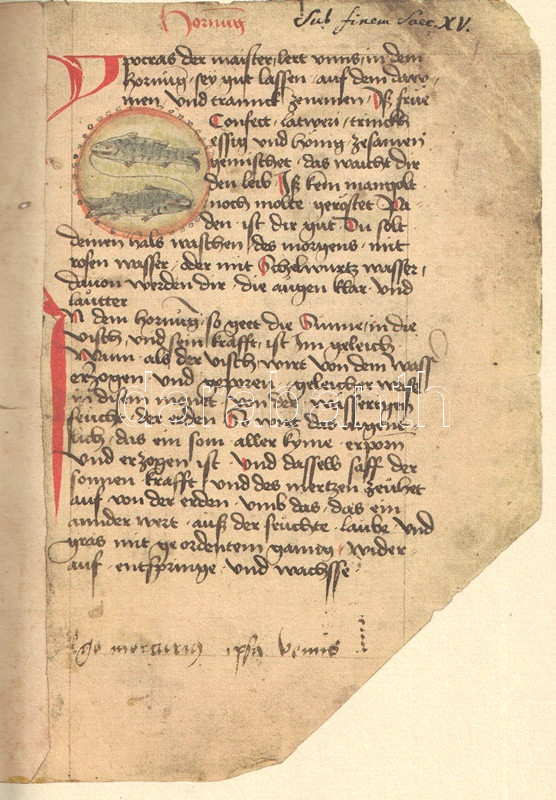 Hornung
Sub finem Saec. XV.
Ypocras der maister lert vnns in dem
Hornung sey gut lassen auf dem daw
men vnd tranck zenemen Iß frue
Confect latweri trinckh
essig vnd honig zesamen
gemischet das waicht dir
den leib Iß kein mangolt
noch molte geröstet Pa
den ist dir gut Du solt
deinen hals waschen des morgens mit
rosen wasser oder mit Schelwurtz wasser
dauon werden dir die augen klar vnd
lautter
In dem hornung so geet die Sunne in die
visch vnd sein krafft ist im geleich
Wann als der visch wirt von dem wasser
erzogen vnd geporen geleicher weis
in disem monet von der wasserigen
feuchte der erden wirt das
lich das ein som aller kyme erporn
vnd erzogen ist vnd dasselb saff der
sonnen krafft vnd des mertzen zeuhet
auf von der erden vmb das das ein
annder wert auß der feuchte laube vnd
gras mit geordentem ganng wider
auf entspringe vnd wachsse
Ego mercurius ipsa venus
darabanth